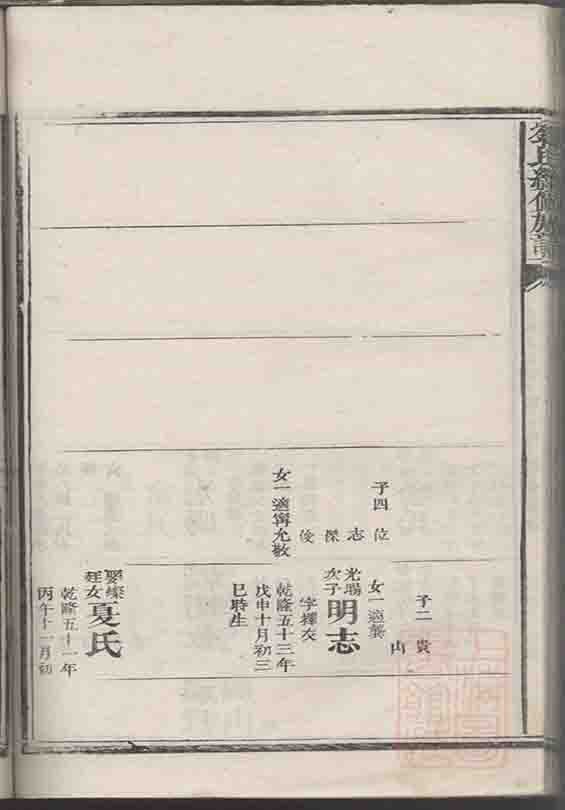 氏續修族譜
子四 位
志
傑
俊
女一適甯允敬
子二 貴
山
女一適龔
次子
明志
乾隆五十三年
戊申十月初三
巳時生
娶燦
廷女
夏氏
乾隆五十一年
丙午十一月初